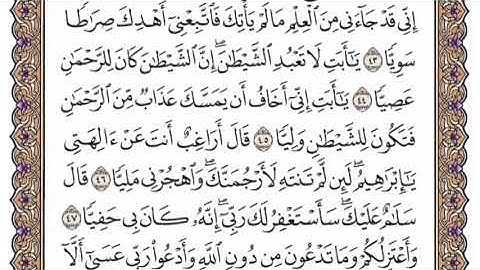 إِنِّي قَدْ جَاءَنِي مِنَ الْعِلْمِ مَا لَمْ يَأْتِكَ فَاتَّبِعْنِي أَهْدِكَ صِرَاطًا
سَوِيًّا ٤٣ يَا أَبَتِ لَا تَعْبُدِ الشَّيْطَانَ إِنَّ الشَّيْطَانَ كَانَ لِلرَّحْمَٰنِ
عَصِيًّا ٤٤ يَا أَبَتِ إِنِّي أَخَافُ أَن يَمَسَّكَ عَذَابٌ مِّنَ الرَّحْمَٰنِ
فَتَكُونَ لِلشَّيْطَانِ وَلِيًّا ٤٥ قَالَ أَرَاغِبٌ أَنتَ عَنْ آلِهَتِي
يَا إِبْرَاهِيمُ لَئِن لَّمْ تَنتَهِ لَأَرْجُمَنَّكَ وَاهْجُرْنِي مَلِيًّا ٤٦ قَالَ
سَلَامٌ عَلَيْكَ سَأَسْتَغْفِرُ لَكَ رَبِّي إِنَّهُ كَانَ بِي حَفِيًّا ٤٧
وَأَعْتَزِلُكُمْ وَمَا تَدْعُونَ مِن دُونِ اللَّهِ وَأَدْعُو رَبِّي عَسَىٰ أَلَّا